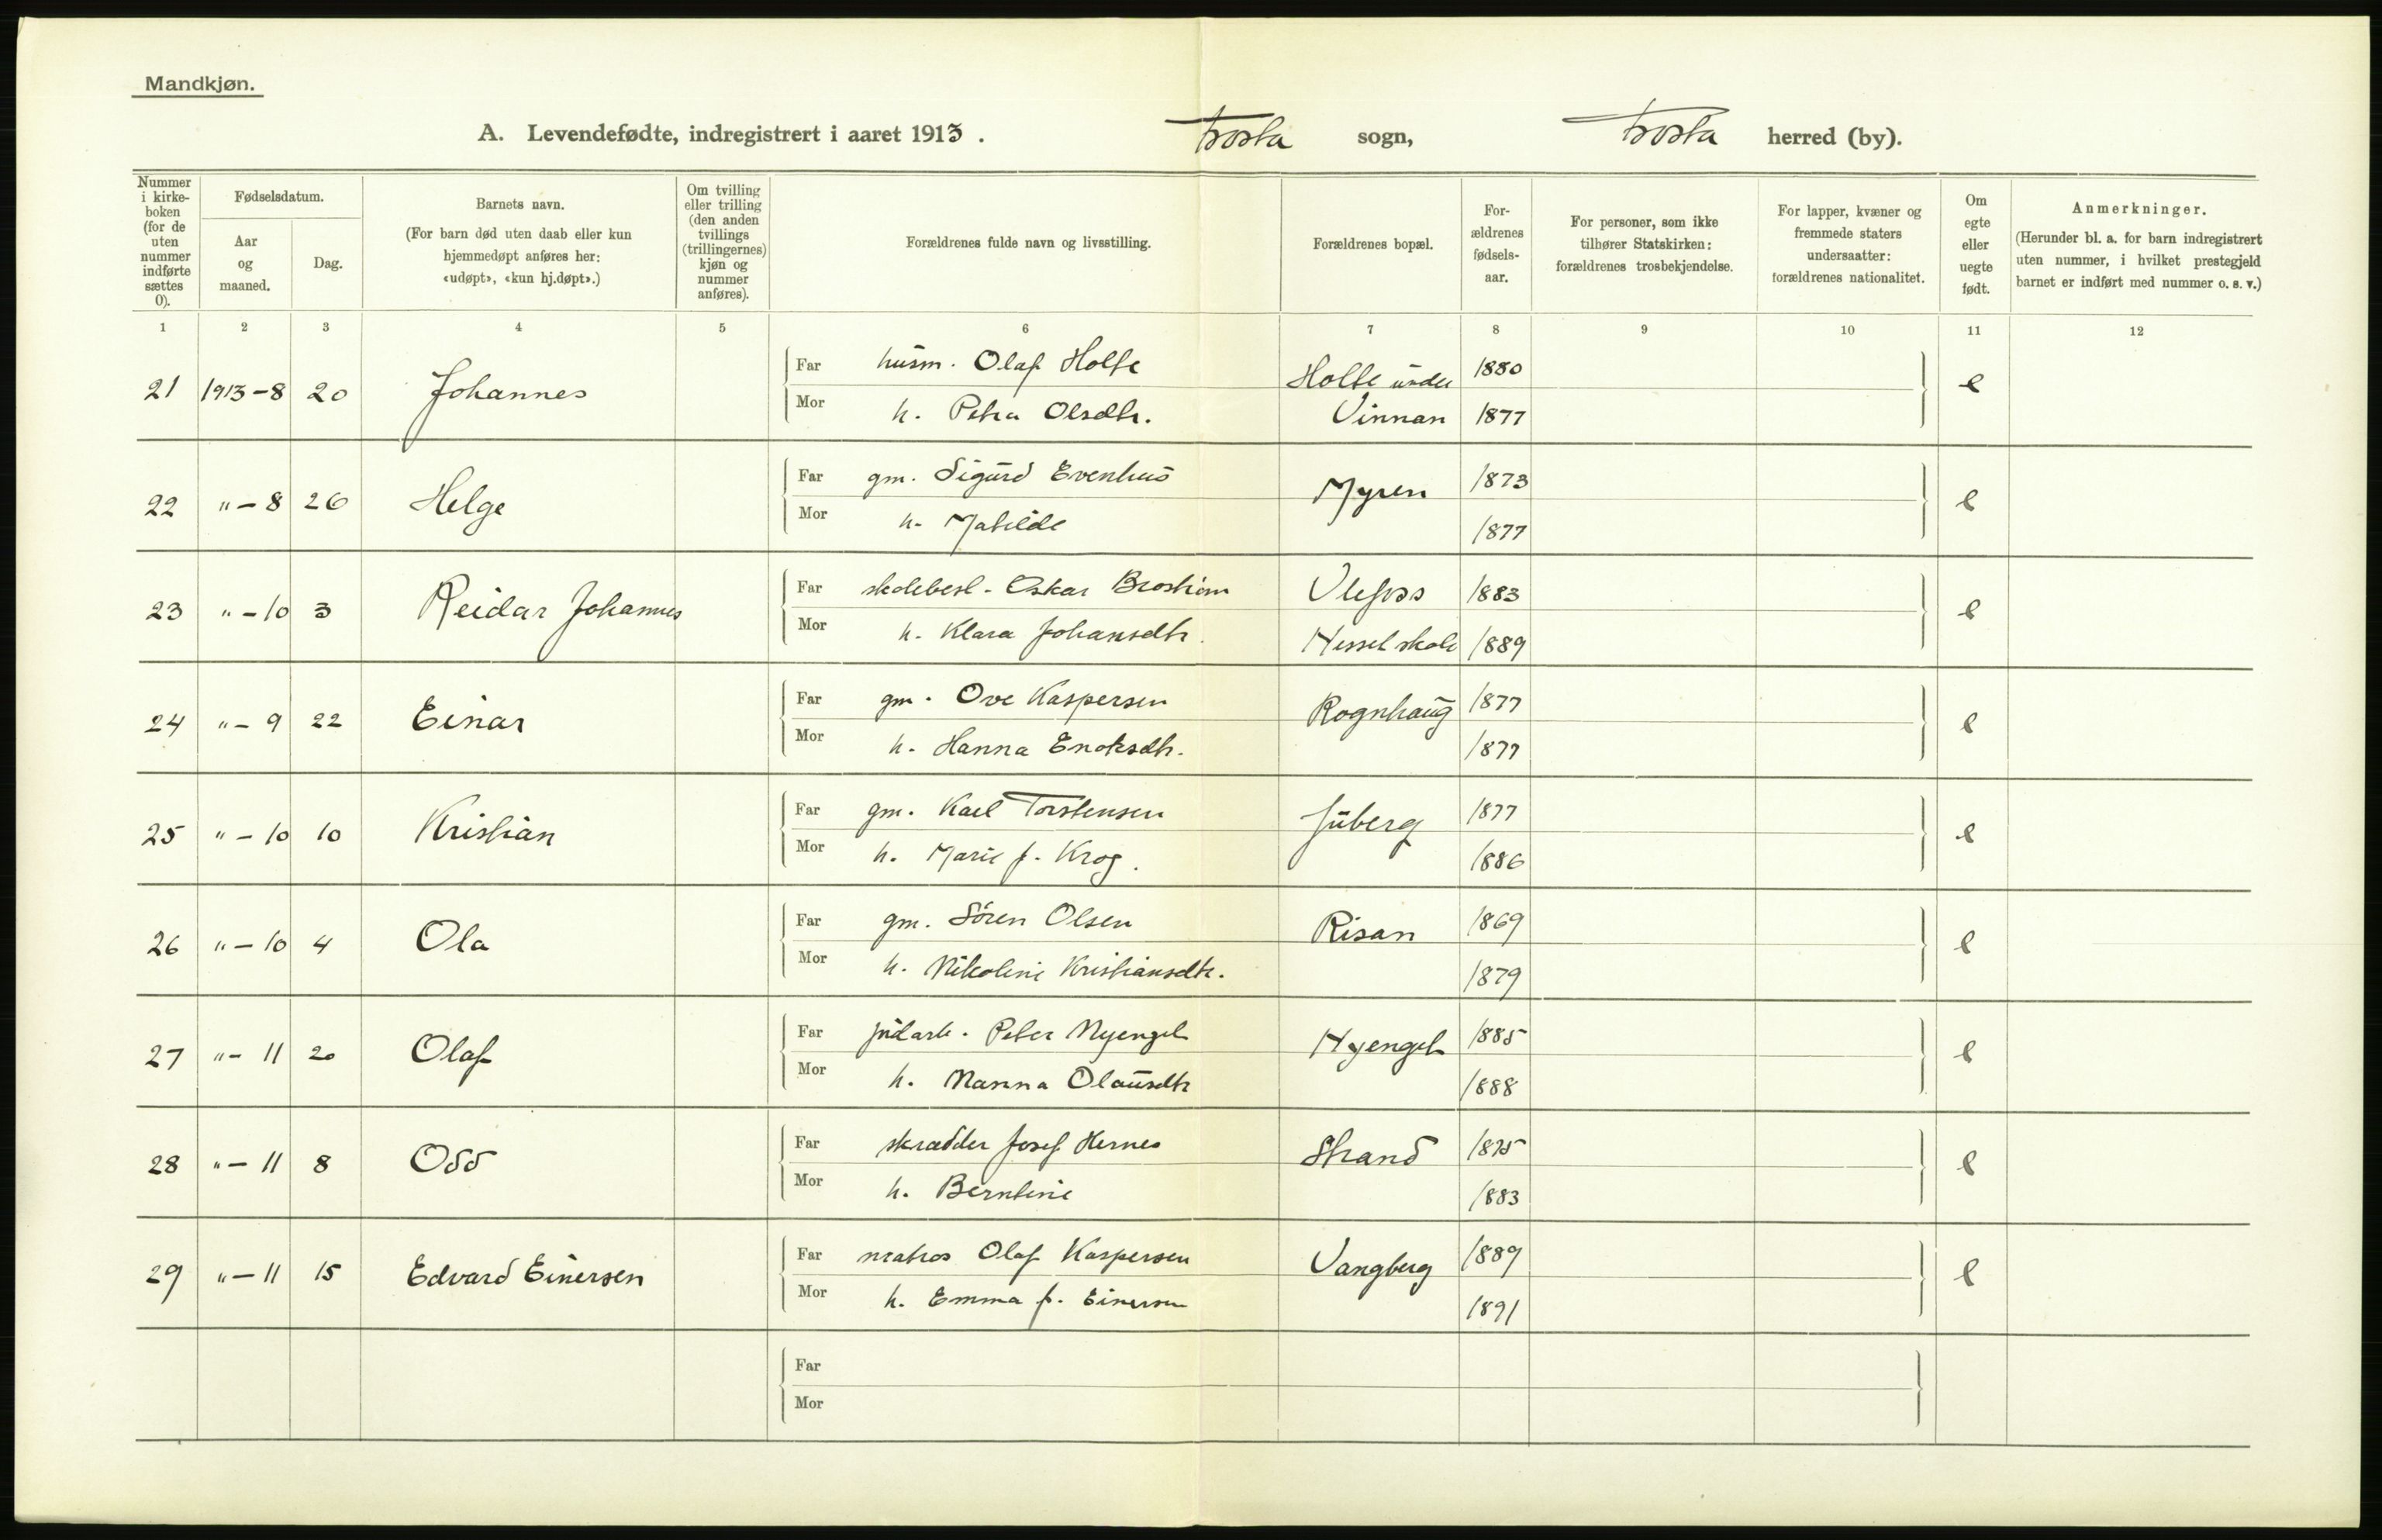 Mandkjøn.
A. Levendefødte, indregistrert i aaret 1913. Frosta sogn, Frosta herred (by).
Nummer i kirke-boken (for de uten nummer indførte sættes 0).
Fødselsdatum.
Aar og maaned.
Dag.
Barnets navn.
(For barn død uten daab eller kun hjemmedøpt anføres her: «udøpt», «kun hj.døpt».)
Om tvilling eller trilling (den anden tvillings (trillingernes) kjøn og nummer anføres).
Forældrenes fulde navn og livsstilling.
Forældrenes bopæl.
For-ældrenes fødsels-aar.
For personer, som ikke tilhører Statskirken: forældrenes trosbekjendelse.
For lapper, kvæner og fremmede staters undersaatter: forældrenes nationalitet.
Om egte eller uegte født.
Anmerkninger.
(Herunder bl. a. for barn indregistrert uten nummer, i hvilket prestegjeld barnet er indført med nummer o. s. v.)
1 2 3 4 5 6 7 8 9 10 11 12
21 1913-8 20 Johannes Far husm. Olaf Holte Holte under 1880 e
Mor h. Petra Olsdtr. Vinnan 1877
22 " - 8 26 Helge Far gm. Sigurd Evenhus Myren 1873 e
Mor h. Matilde 1877
23 " - 10 3 Reidar Johannes Far skolebest. Oskar Brostrøm Ulefoss 1883 e
Mor h. Klara Johansdtr. Hessel skole 1889
24 " - 9 22 Einar Far gm. Ove Kaspersen Rognhaug 1877 e
Mor h. Hanna Enoksdtr. 1877
25 " - 10 10 Kristian Far gm. Karl Torstensen Juberg 1877 e
Mor h. Marie f. Krog. 1886
26 " - 10 4 Ola Far gm. Sören Olsen Risan 1869 e
Mor h. Nikoline Kristiansdtr. 1879
27 " - 11 20 Olaf Far Peter Nyenget Nyenget 1885 e
Mor h. Nanna Olausdtr 1888
28 " - 11 8 Odd Far skrædder Josef Hernes Strand 1875 e
Mor h. Berntine 1883
29 " - 11 15 Edvard Einersen Far matros Olaf Kaspersen Vangberg 1889 e
Mor h. Emma f. Einersen 1891
Far
Mor